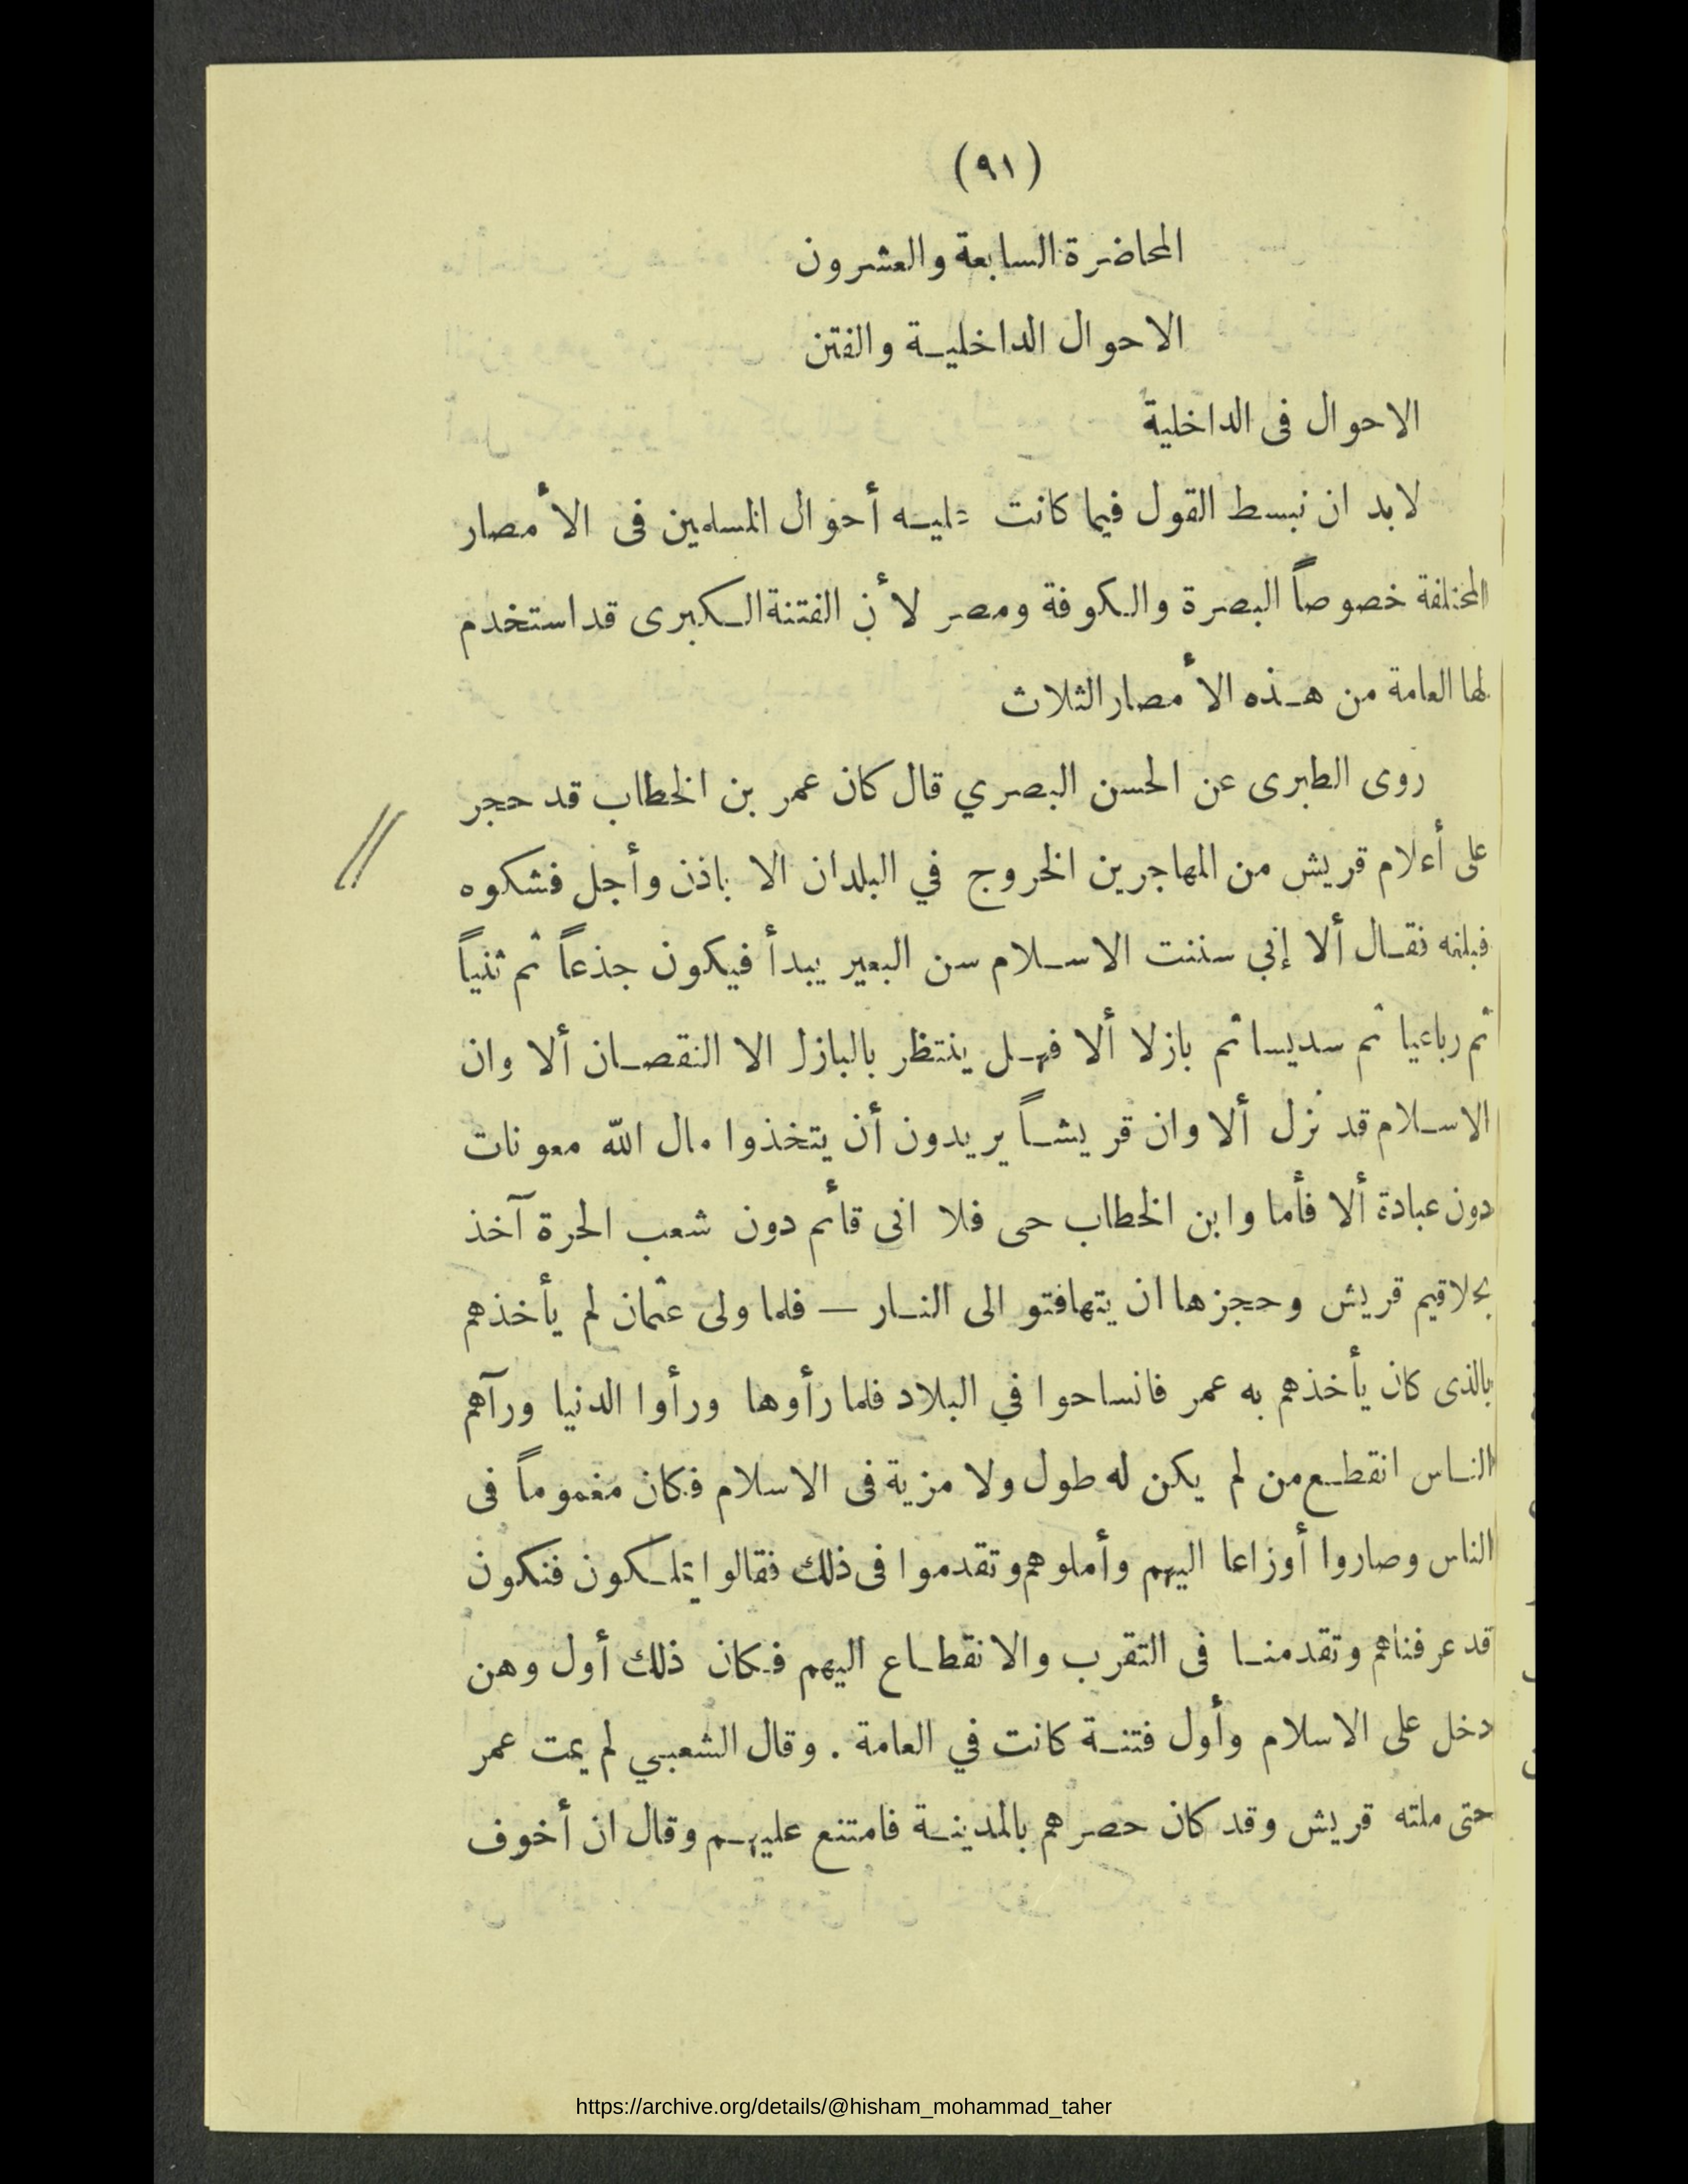 (٩١)
المحاضرة السابعة والعشرون
الاحوال الداخلية والفتن
الاحوال فى الداخلية
لابد ان نبسط القول فيما كانت عليه أحوال المسلمين فى الأمصار
المختلفة خصوصاً البصرة والكوفة ومصر لأن الفتنة الكبرى قد استخدم
لها العامة من هذه الأمصار الثلاث
روى الطبرى عن الحسن البصري قال كان عمر بن الخطاب قد حجر
على أعلام قريش من المهاجرين الخروج في البلدان الا باذن وأجل فشكوه
فبلغه فقال ألا إني سننت الاسلام سن البعير يبدأ فيكون جذعاً ثم ثنياً
ثم رباعيا ثم سديسا ثم بازلا ألا فهل ينتظر بالبازل الا النقصان ألا وان
الاسلام قد نزل ألا وان قريشاً يريدون أن يتخذوا مال الله معونات
دون عبادة ألا فأما وابن الخطاب حى فلا انى قائم دون شعب الحرة آخذ
بحلاقيم قريش وحجزها ان يتهافتو الى النار — فلما ولى عثمان لم يأخذهم
بالذى كان يأخذهم به عمر فانساحوا في البلاد فلما رأوها ورأوا الدنيا ورآهم
الناس انقطع من لم يكن له طول ولا مزية فى الاسلام فكان مغموماً فى
الناس وصاروا أوزاعا اليهم وأملوهم وتقدموا فى ذلك فقالوا يملكون فنكون
قد عرفناهم وتقدمنا فى التقرب والانقطاع اليهم فكان ذلك أول وهن
دخل على الاسلام وأول فتنة كانت في العامة . وقال الشعبي لم يمت عمر
حتى ملته قريش وقد كان حصرهم بالمدينة فامتنع عليهم وقال ان أخوف
https://archive.org/details/@hisham_mohammad_taher